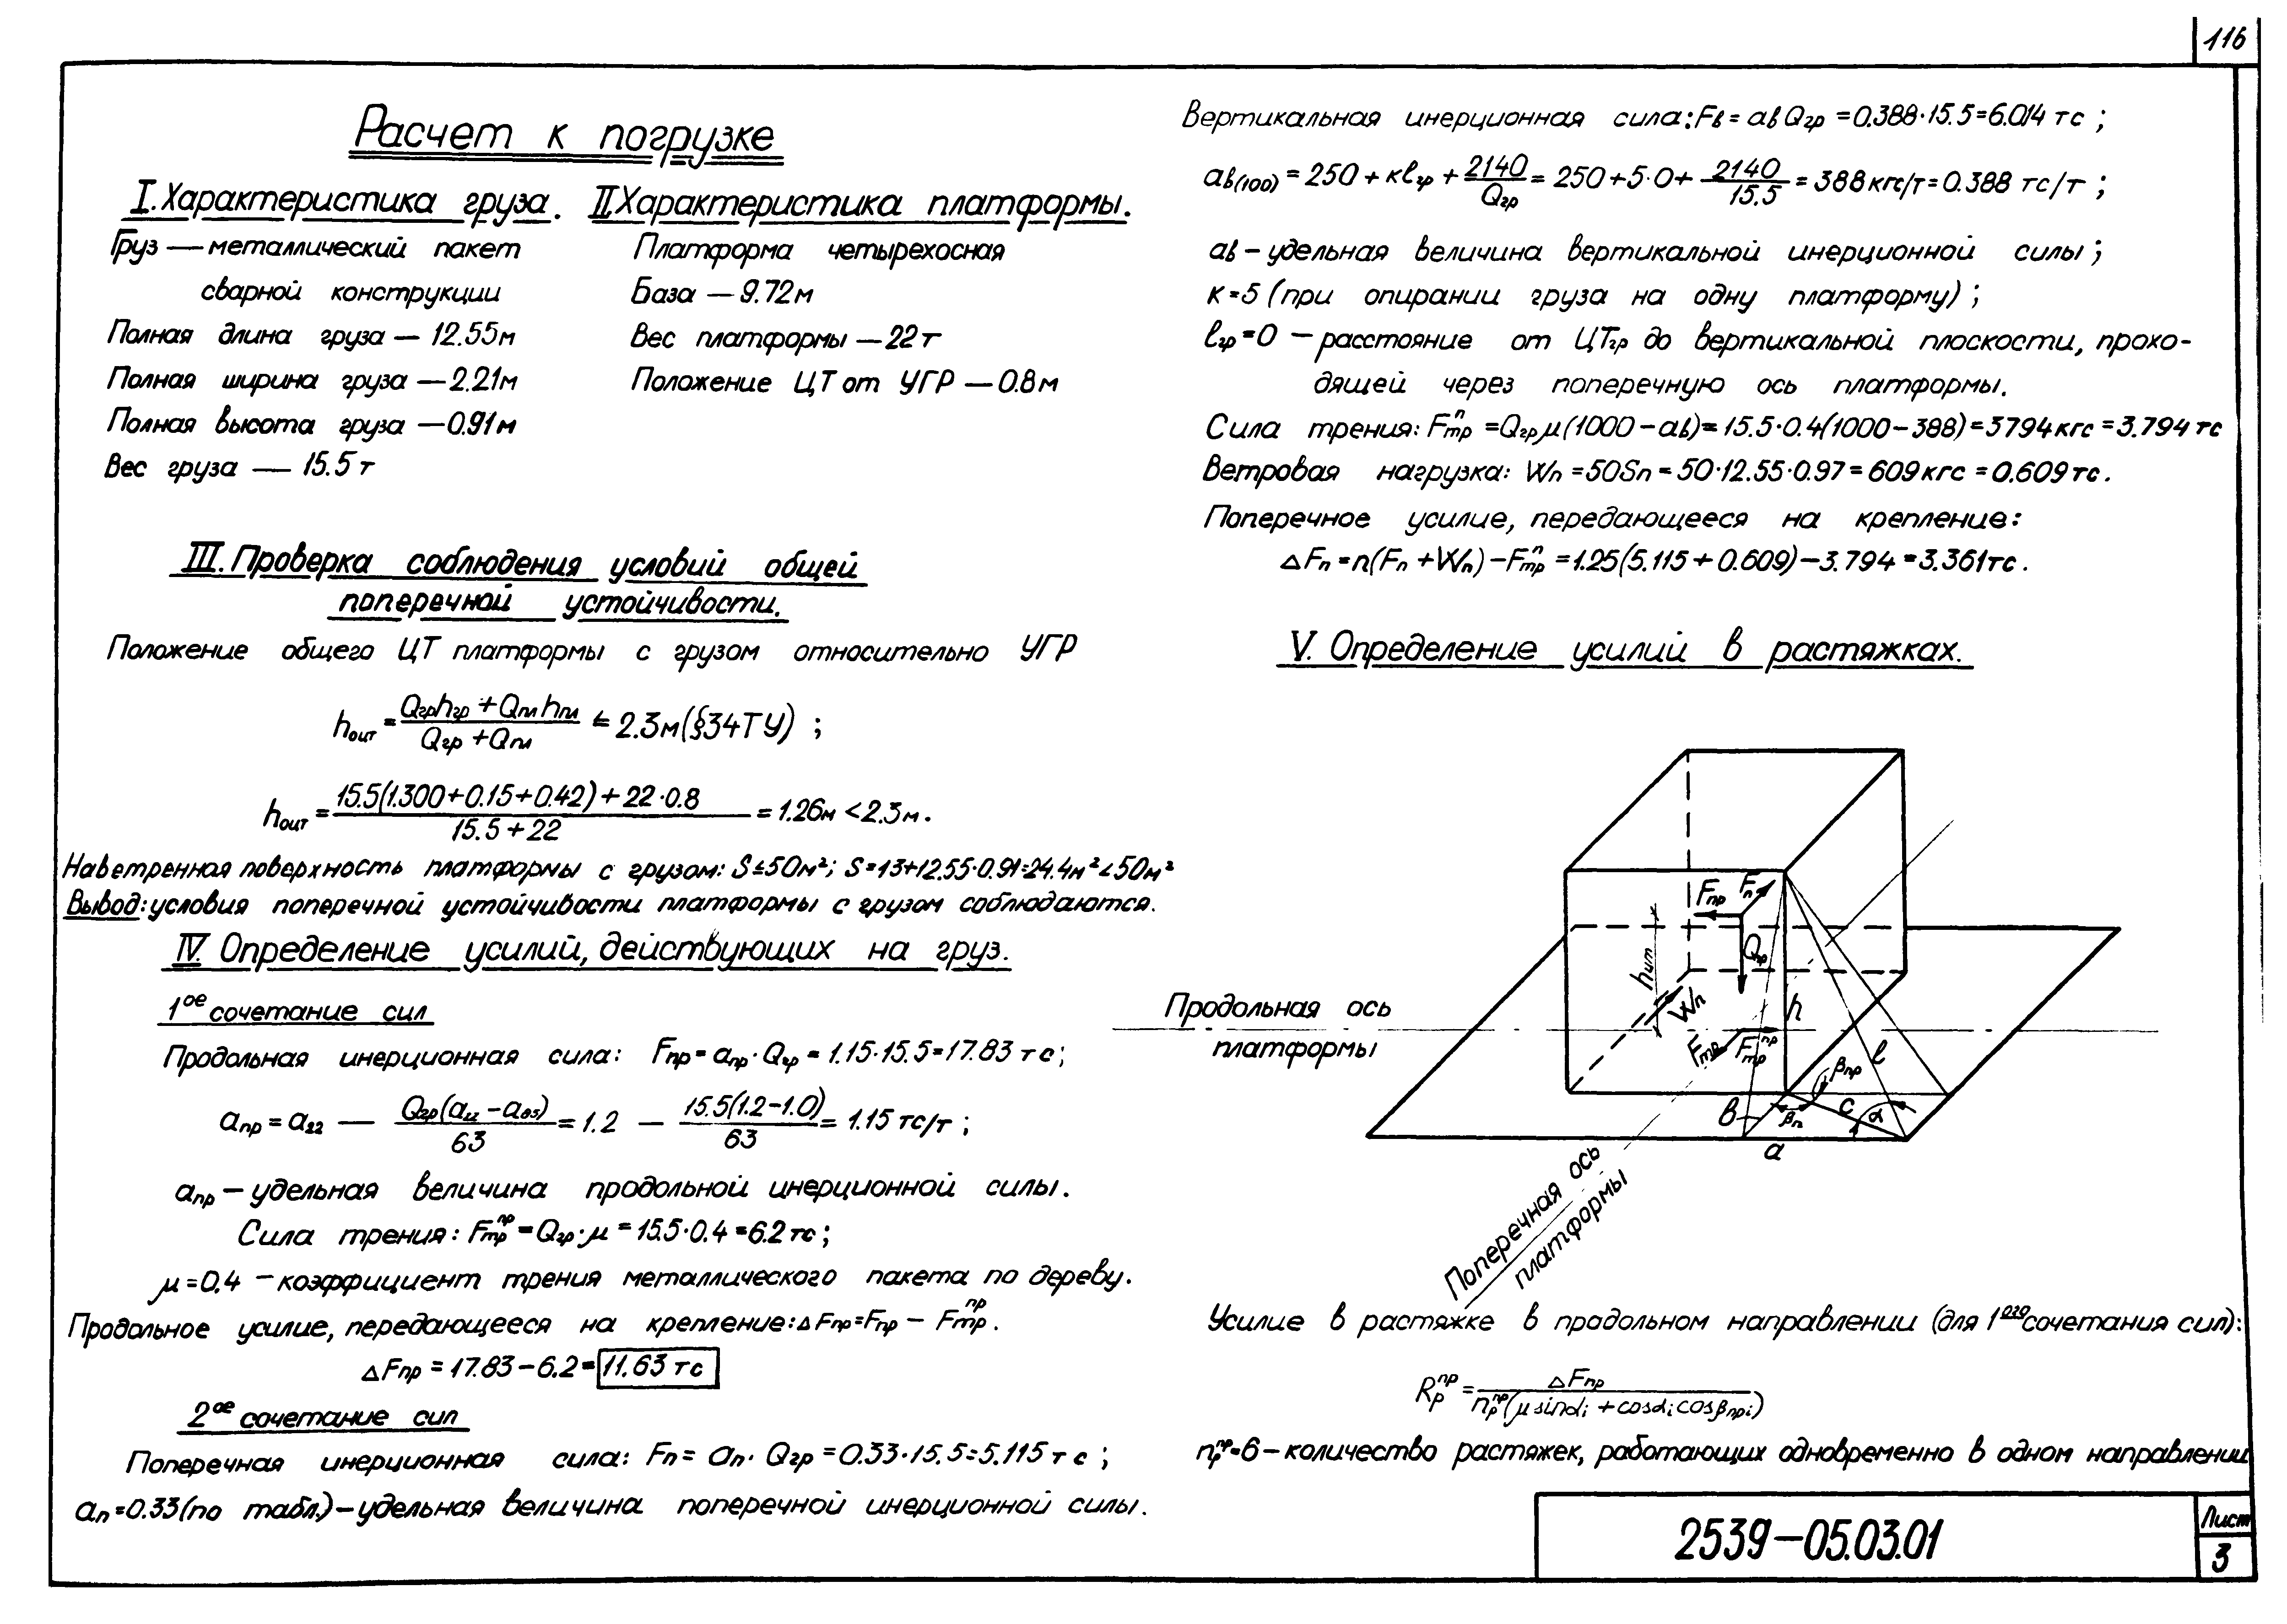 116
Расчет к погрузке
I. Характеристика груза.
Груз — металлический пакет
сварной конструкции
Полная длина груза — 12.55м
Полная ширина груза — 2.21м
Полная высота груза — 0.91м
Вес груза — 15.5т
II. Характеристика платформы.
Платформа четырехосная
База — 9.72м
Вес платформы — 22т
Положение ЦТ от УГР — 0.8м
III. Проверка соблюдения условий общей
поперечной устойчивости.
Положение общего ЦТ платформы с грузом относительно УГР
hоцт = (Qгр hгр + Qпл hпл) / (Qгр + Qпл) ≤ 2.3м (§34ТУ) ;
hоцт = (15.5(1.300+0.15+0.42)+22·0.8) / (15.5+22) = 1.26м < 2.3м.
Наветренная поверхность платформы с грузом: S≤50м²; S=13+12.55·0.91=24.4м²<50м²
Вывод: условия поперечной устойчивости платформы с грузом соблюдаются.
IV. Определение усилий, действующих на груз.
1ое сочетание сил
Продольная инерционная сила: Fпр = aпр · Qгр = 1.15·15.5=17.83 тс;
aпр = a22 — Qгр(a22 – a85) / 63 = 1.2 — 15.5(1.2–1.0) / 63 = 1.15 тс/т ;
aпр – удельная величина продольной инерционной силы.
Сила трения: Fтр^пр = Qгр·μ = 15.5·0.4 = 6.2 тс;
μ=0.4 – коэффициент трения металлического пакета по дереву.
Продольное усилие, передающееся на крепление: ΔFпр=Fпр – Fтр^пр.
ΔFпр = 17.83–6.2= 11.63 тс
2ое сочетание сил
Поперечная инерционная сила: Fп = aп · Qгр = 0.33·15.5=5.115 тс ;
aп=0.33 (по табл.) – удельная величина поперечной инерционной силы.
Вертикальная инерционная сила: Fв = aв Qгр = 0.388·15.5=6.014 тс ;
aв(100) = 250 + кlгр + 2140/Qгр = 250+5·0+ 2140/15.5 = 388 кгс/т = 0.388 тс/т ;
aв – удельная величина вертикальной инерционной силы ;
к=5 (при опирании груза на одну платформу) ;
lгр=0 – расстояние от ЦТгр до вертикальной плоскости, прохо-
дящей через поперечную ось платформы.
Сила трения: Fтр^п = Qгр μ(1000–aв) = 15.5·0.4(1000–388) = 3794кгс = 3.794 тс
Ветровая нагрузка: Wп = 50Sп = 50·12.55·0.97 = 609кгс = 0.609тс.
Поперечное усилие, передающееся на крепление:
ΔFп = n(Fп + Wп) – Fтр^п = 1.25(5.115 + 0.609) – 3.794 = 3.361тс.
V. Определение усилий в растяжках.
Fпр
Fп
Qгр
hцт
Wп
h
Fтр^п
Fтр^пр
l
βпр
в
βп
c
α
a
Продольная ось
платформы
Поперечная ось
платформы
Усилие в растяжке в продольном направлении (для 1ого сочетания сил):
Rр^пр = ΔFпр / nр^пр(μ sinαi + cosαi cosβпрi)
nр^пр=6 – количество растяжек, работающих одновременно в одном направлении
2539–05.03.01
Лист
3